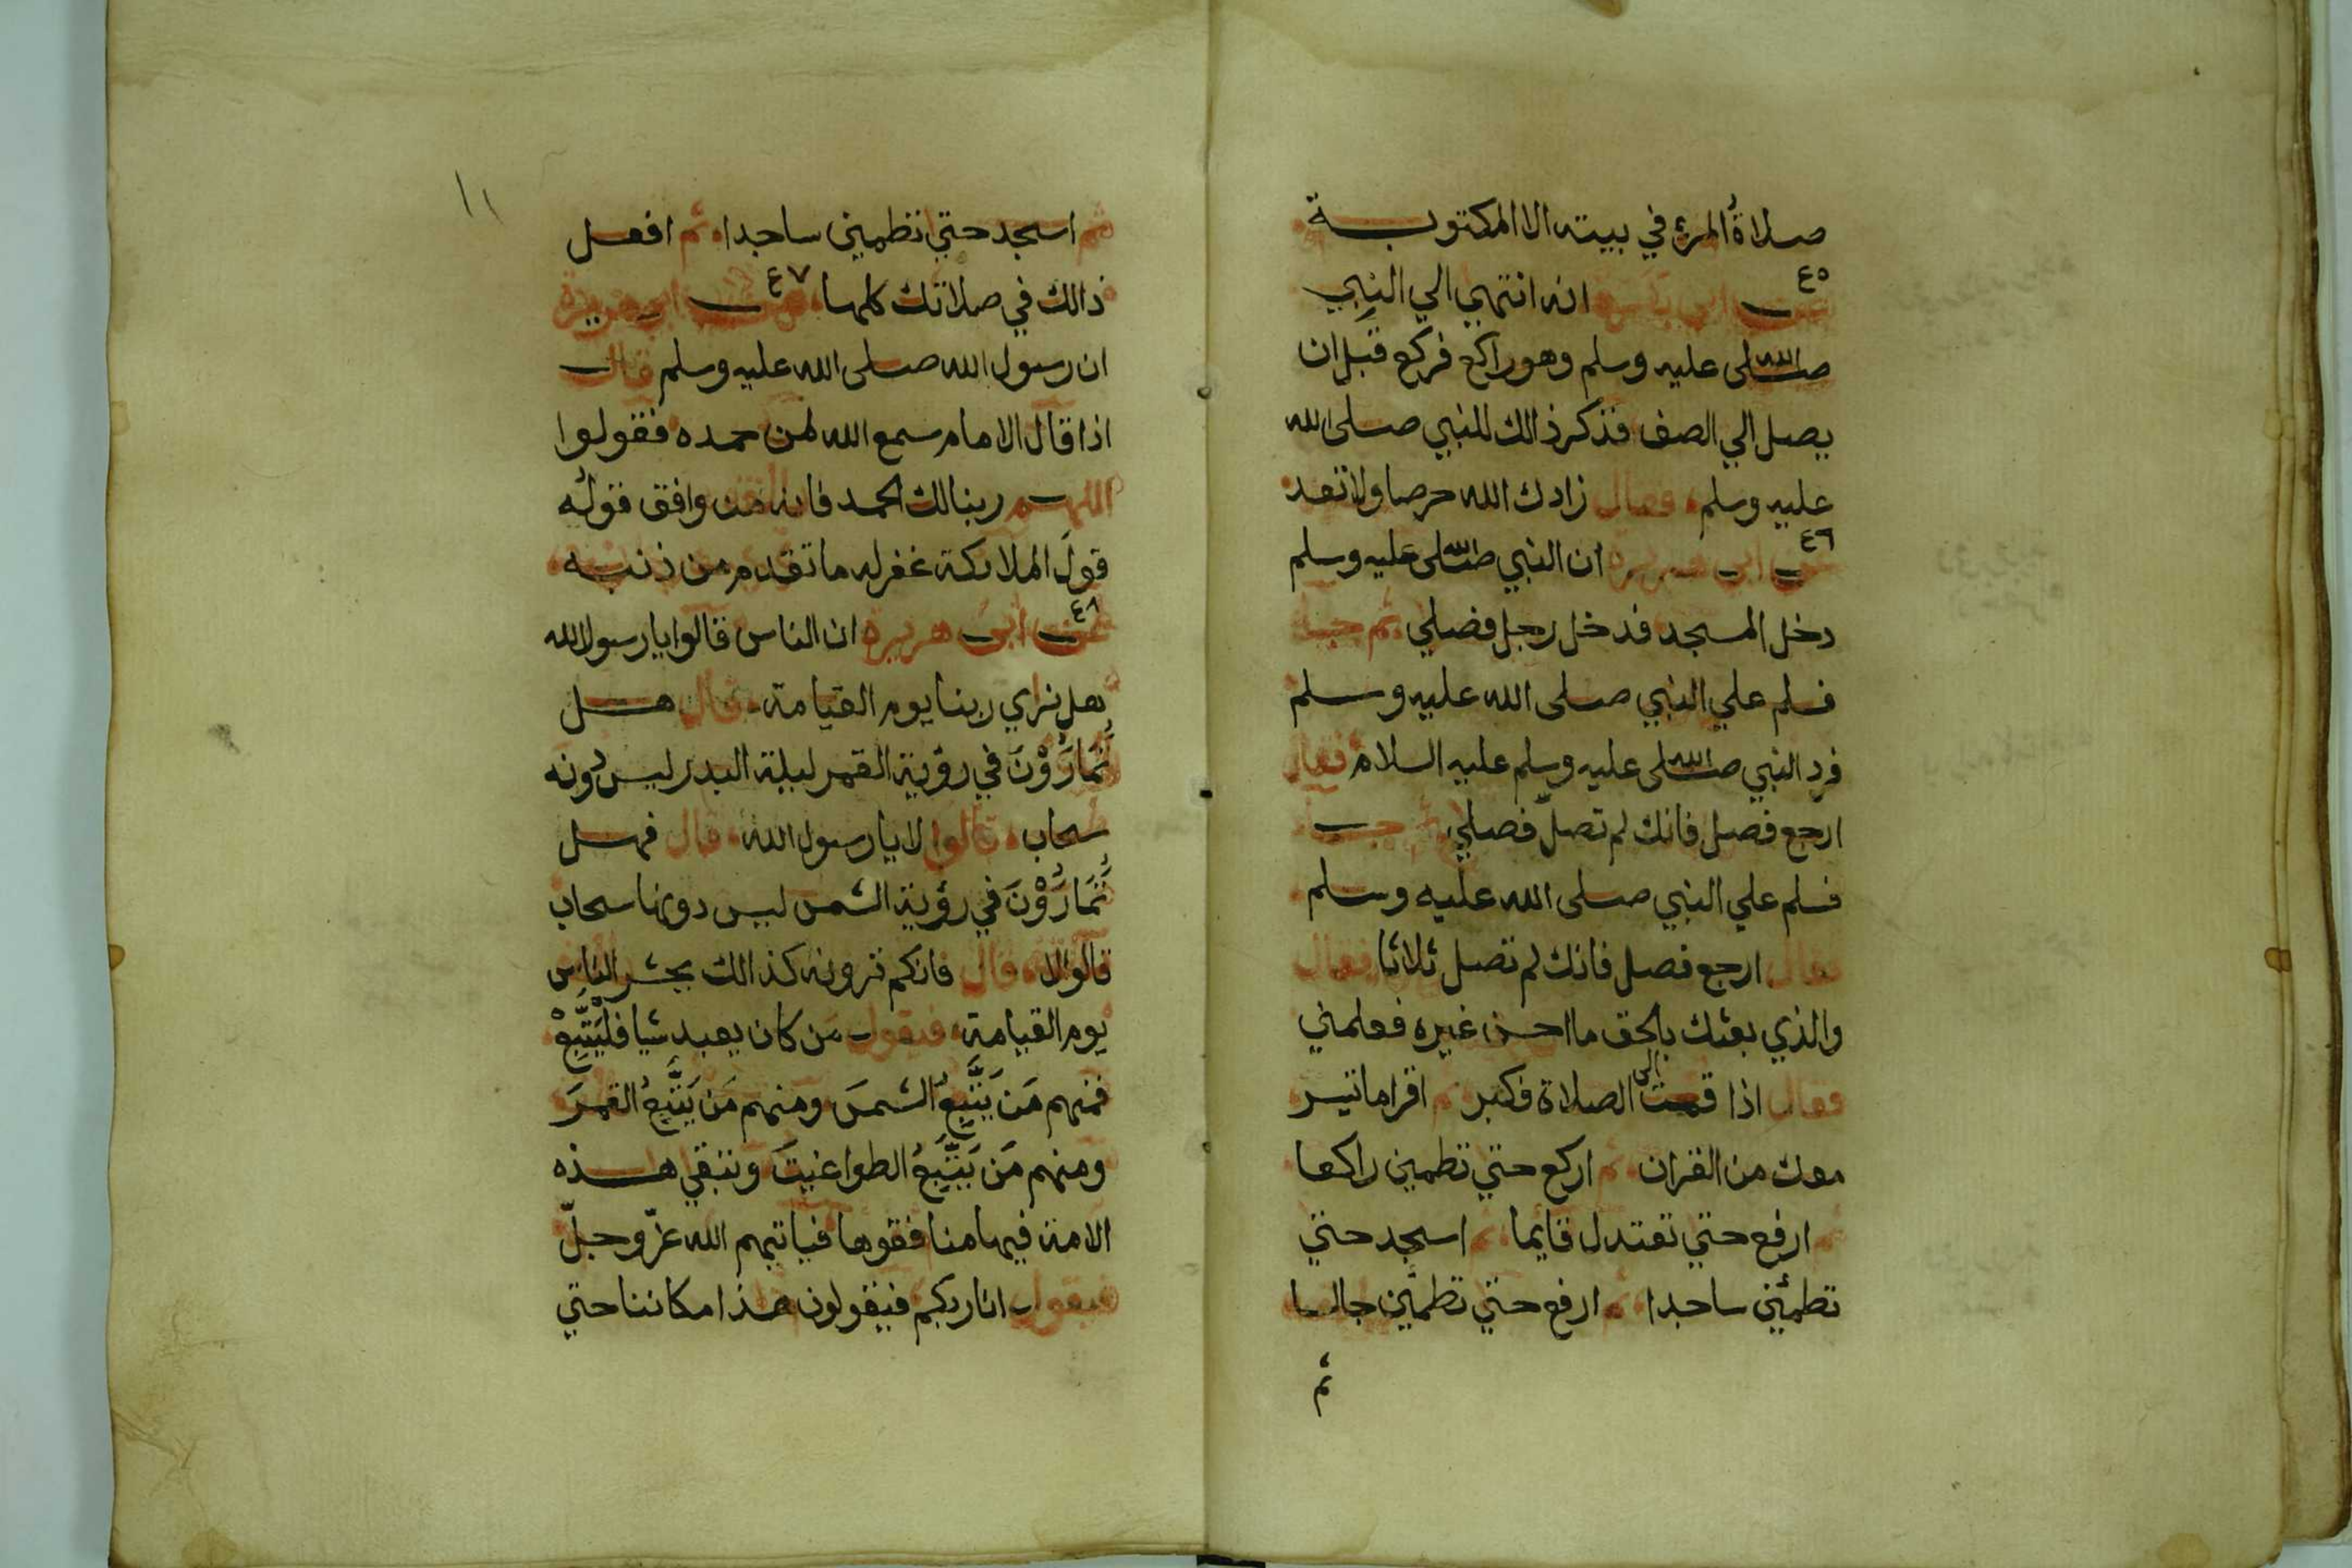 صلاةُ المرئ في بيته الا المكتوبة
٤٥
عن ابي بكرة انه انتهي الي النبي
صلى الله عليه وسلم وهو راكع فركع قبل ان
يصل الي الصف فذكر ذالك للنبي صلى الله
عليه وسلم فقال زادك الله حرصا ولا تعد
٤٦
عن ابي هريرة ان النبي صلى الله عليه وسلم
دخل المسجد فدخل رجل فصلي ثم جا
فسلم علي النبي صلى الله عليه وسلم
فرد النبي صلى الله عليه وسلم عليه السلام فقال
ارجع فصل فانك لم تصلّ فصلي ثم جا
فسلم علي النبي صلى الله عليه وسلم
فقال ارجع فصل فانك لم تصل ثلاثا فقال
والذي بعثك بالحق ما احسن غيره فعلمني
فقال اذا قمت الى الصلاة فكبر ثم اقرا ما تيسر
معك من القران ثم اركع حتي تطمين راكعا
ثم ارفع حتي تعتدل قايما ثم اسجد حتي
تطمئن ساجدا ثم ارفع حتي تطمئن جالسا
ثم
١١
ثم اسجد حتي تطمين ساجدا ثم افعل
ذالك في صلاتك كلها ٤٧ عن ابي هريرة
ان رسول الله صلى الله عليه وسلم قال
اذا قال الامام سمع الله لمن حمده فقولوا
اللهم ربنا لك الحمد فانه من وافق قولُه
قولَ الملائكة غفر له ما تقدم من ذنبه
٤٨
عن ابي هريرة ان الناس قالوا يا رسول الله
هل نراي ربنا يوم القيامة قال هل
تُمَارُوْنَ في رؤية القمر ليلة البدر ليس دونه
سحاب قالوا لا يا رسول الله قال فهل
تُمَارُوْنَ في رؤية الشمس ليس دونها سحاب
قالوا لا قال فانكم ترونه كذالك يحشر الناس
يوم القيامة فيقول مَن كان يعبد شيا فلْيَتَّبِعْ
فمنهم مَن يَتَّبِعُ الشمسَ ومنهم مَن يَتَّبِعُ القمرَ
ومنهم مَن يَتَّبِعُ الطواغيتَ وتبقي هذه
الامة فيها منافقوها فياتيهم الله عزّ وجلّ
فيقول انا ربكم فيقولون هذا مكاننا حتي